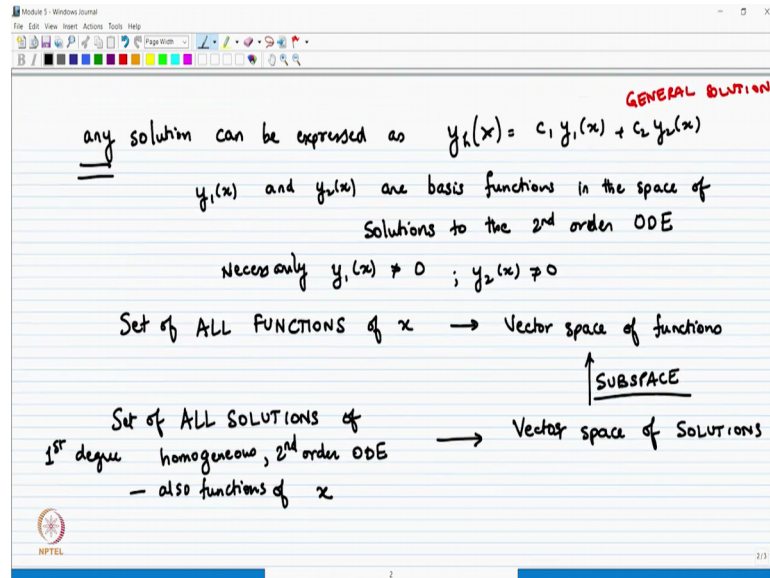 Module 5 - Windows Journal
File Edit View Insert Actions Tools Help
Page Width
B I
GENERAL SOLUTION
any solution can be expressed as yₕ(x) = c₁ y₁(x) + c₂ y₂(x)
y₁(x) and y₂(x) are basis functions in the space of
Solutions to the 2nd order ODE
Necessarily y₁(x) ≠ 0 ; y₂(x) ≠ 0
Set of ALL FUNCTIONS of x → Vector space of functions
↑ SUBSPACE
Set of ALL SOLUTIONS of
1st degree homogeneous, 2nd order ODE → Vector space of SOLUTIONS
— also functions of x
NPTEL
2/3
2